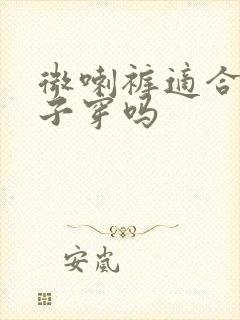 微喇裤適合
子穿吗
安嵐